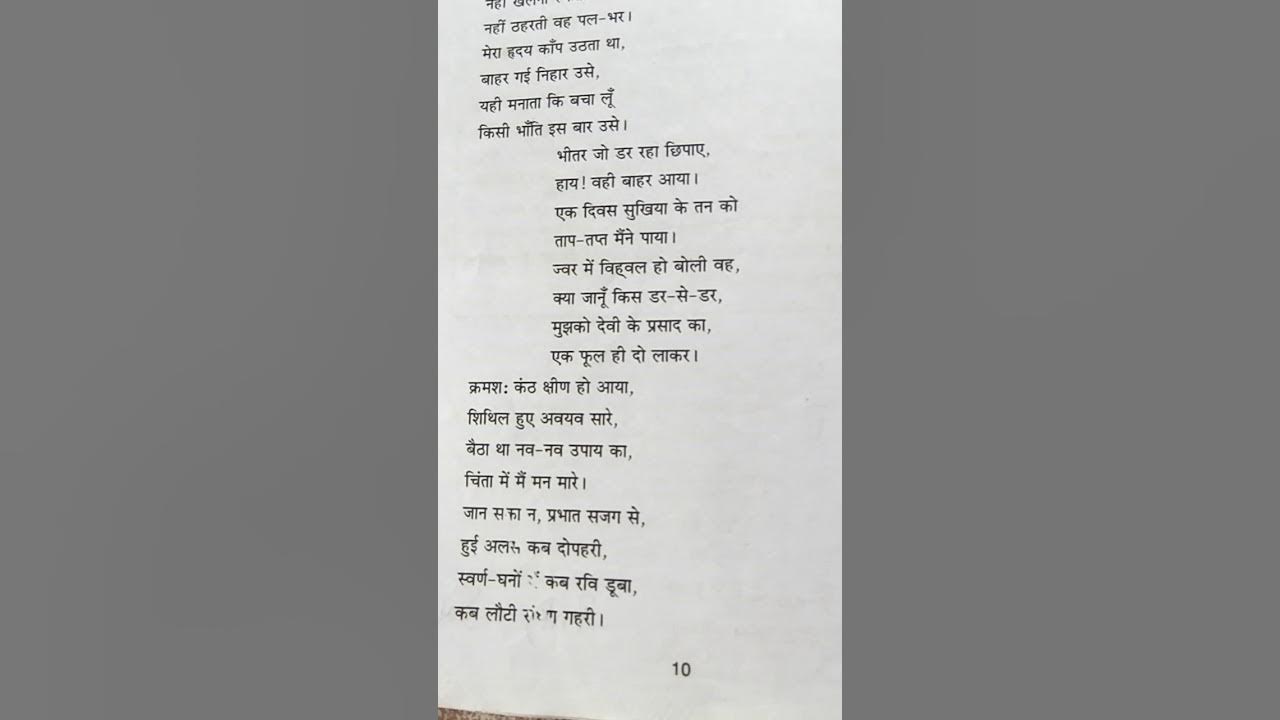 नहीं ठहरती वह पल-भर।
मेरा हृदय काँप उठता था,
बाहर गई निहार उसे,
यही मनाता कि बचा लूँ
किसी भाँति इस बार उसे।
भीतर जो डर रहा छिपाए,
हाय! वही बाहर आया।
एक दिवस सुखिया के तन को
ताप-तप्त मैंने पाया।
ज्वर में विह्वल हो बोली वह,
क्या जानूँ किस डर-से-डर,
मुझको देवी के प्रसाद का,
एक फूल ही दो लाकर।
क्रमशः कंठ क्षीण हो आया,
शिथिल हुए अवयव सारे,
बैठा था नव-नव उपाय का,
चिंता में मैं मन मारे।
जान सका न, प्रभात सजग से,
हुई अलस कब दोपहरी,
स्वर्ण-घनों कब रवि डूबा,
कब लौटी गहरी।
10